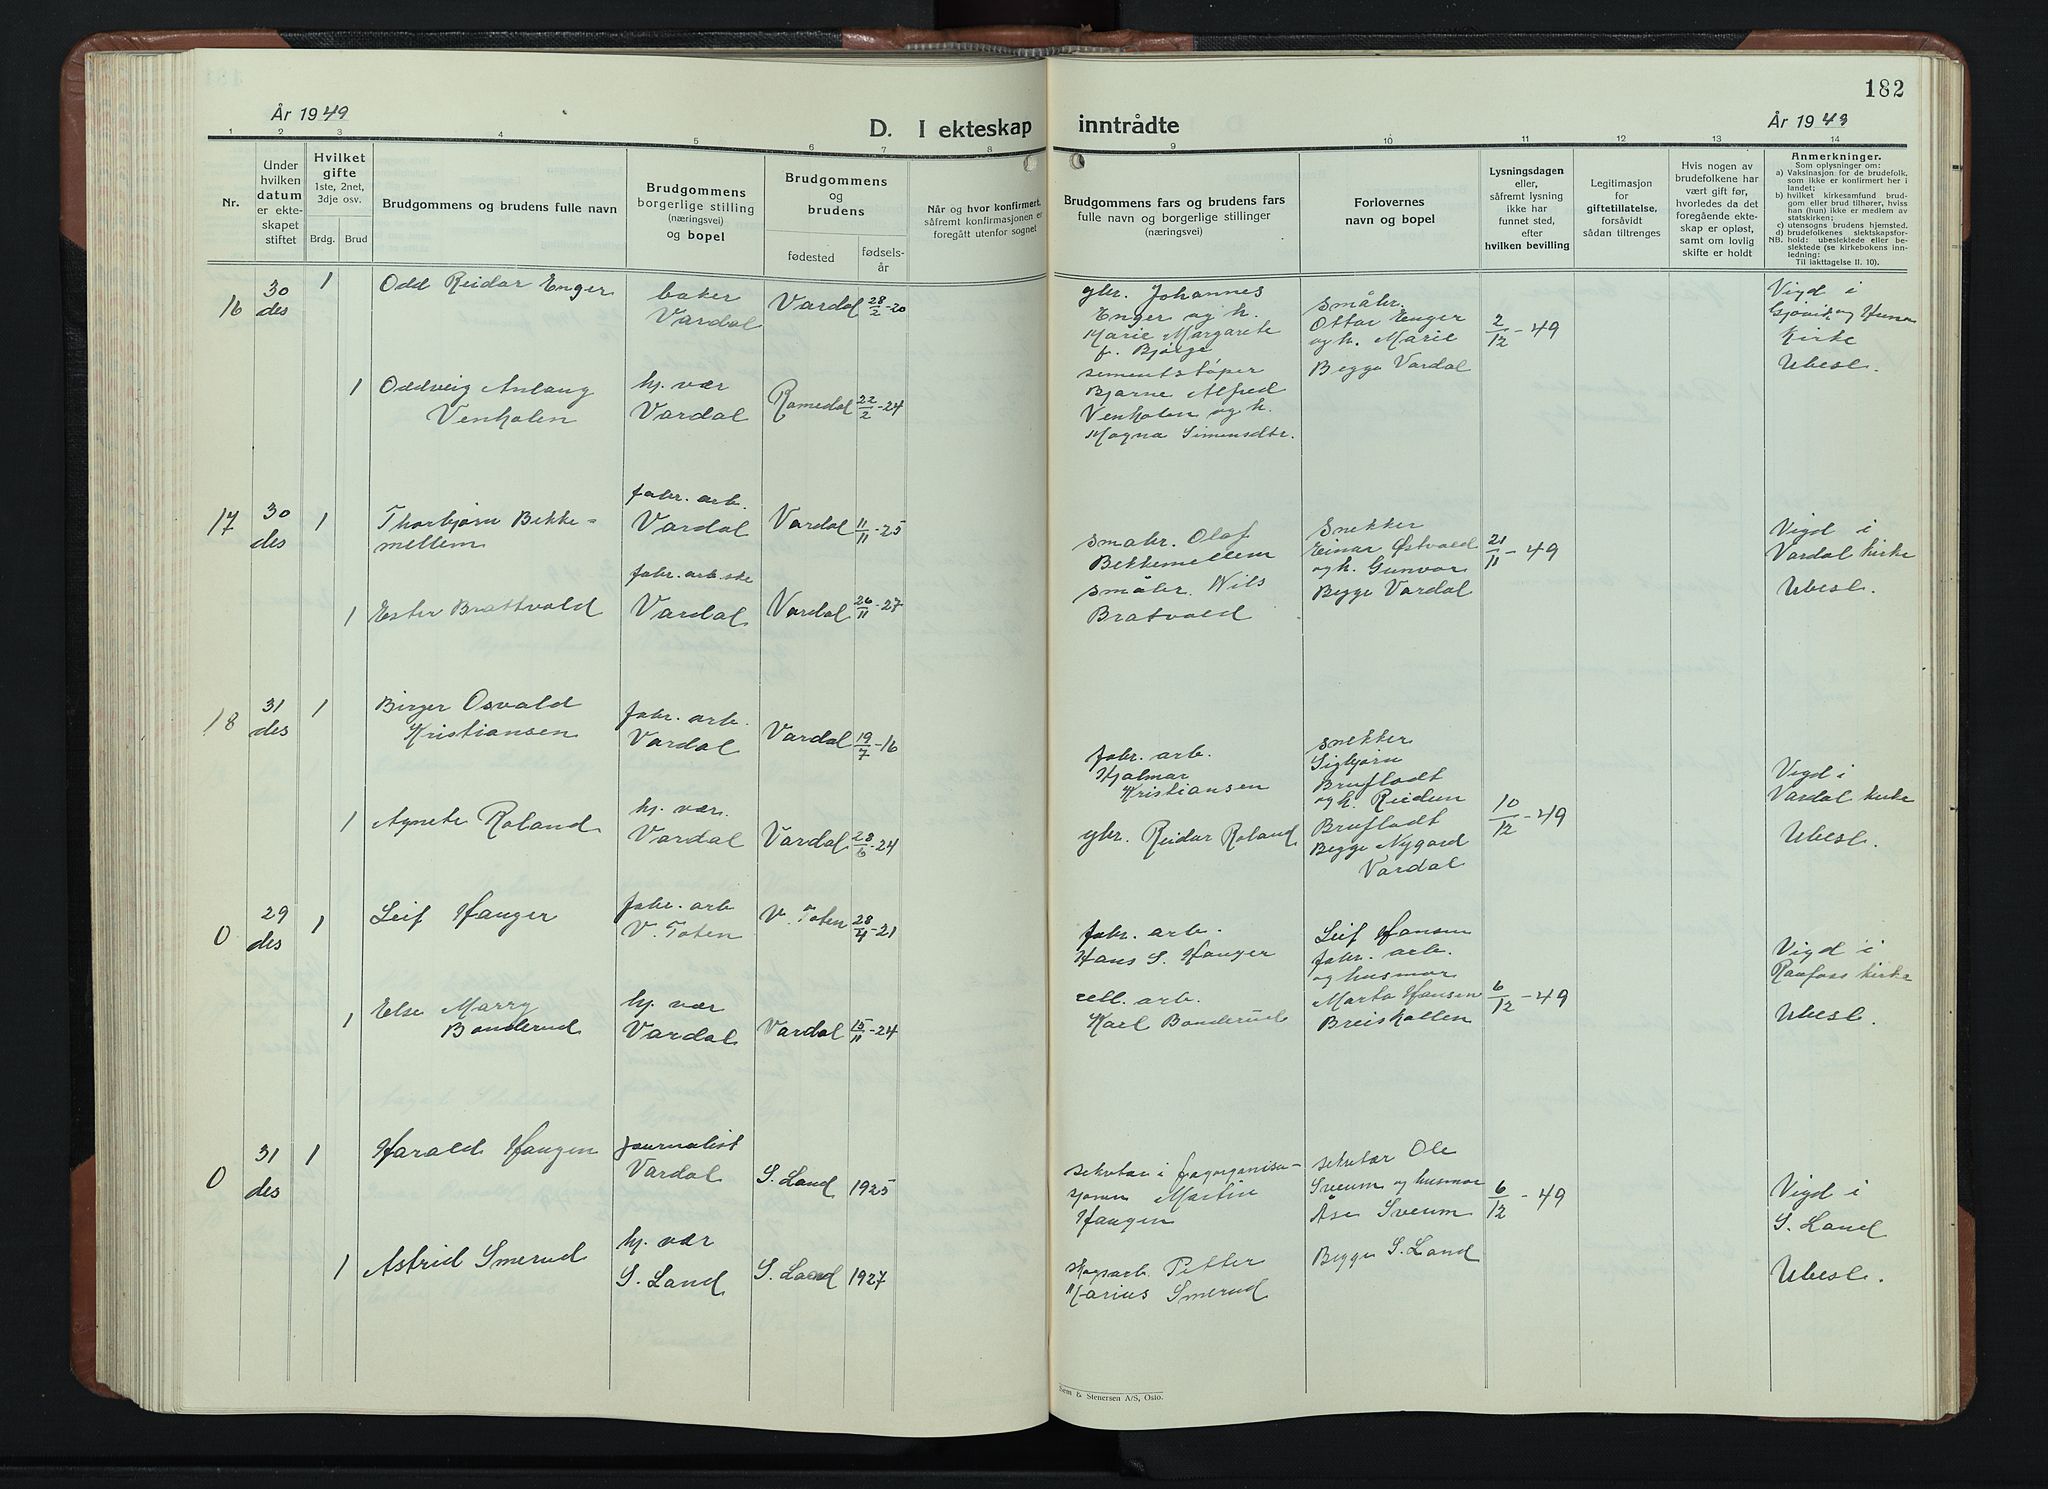 182
År 1949
D. I ekteskap inntrådte
År 1949
1 2 3 4 5 6 7 8 9 10 11 12 13 14
Nr.
Under
hvilken
datum
er ekte-
skapet
stiftet
Hvilket
gifte
1ste, 2net,
3dje osv.
Brdg. Brud
Brudgommens og brudens fulle navn
Brudgommens
borgerlige stilling
(næringsvei)
og bopel
Brudgommens
og
brudens
fødested
fødsels-
år
Når og hvor konfirmert,
såfremt konfirmasjonen er
foregått utenfor sognet
Brudgommens fars og brudens fars
fulle navn og borgerlige stillinger
(næringsvei)
Forlovernes
navn og bopel
Lysningsdagen
eller,
såfremt lysning
ikke har
funnet sted,
efter
hvilken bevilling
Legitimasjon
for
giftetillatelse,
forsåvidt
sådan tiltrenges
Hvis nogen av
brudefolkene har
vært gift før,
hvorledes da det
foregående ekte-
skap er opløst,
samt om lovlig
skifte er holdt
Anmerkninger.
Som oplysninger om:
a) Vaksinasjon for de brudefolk,
som ikke er konfirmert her i
landet;
b) hvilket kirkesamfund brud-
gom eller brud tilhører, hviss
han (hun) ikke er medlem av
statskirken;
c) utensogns brudens hjemsted.
d) brudefolkenes slektskapsfor-
NB. hold: ubeslektede eller be-
slektede (se kirkebokens inn-
ledning:
Til iakttagelse II. 10).
16
30
des
1
Odd Reidar Enger
baker
Vardal
Vardal 28/2-20
gbr. Johannes
Enger og h.
Marie Margarete
f. Bjørge
småbr.
Ottar Enger
og h. Marie
Begge Vardal
2/12-49
Vigd i
Gjøvik og Hunn
Kirke
Ubesl.
1
Oddveig Anlaug
Venholen
hj. vær
Vardal
Romedal 22/2-24
sementstøper
Bjarne Alfred
Venholen og h.
Magna Simensdtr.
17
30
des
1
Thorbjørn Bekke-
mellem
fabr. arb.
Vardal
Vardal 11/11-25
småbr. Olaf
Bekkemellem
snekker
Einar Østvold
og h. Gunvor
Begge Vardal
21/11-49
Vigd i
Vardal kirke
Ubesl.
1
Ester Brattvold
fabr. arb.ske
Vardal
Vardal 26/11-27
småbr. Nils
Bratvold
18
31
des
1
Birger Osvald
Kristiansen
fabr. arb.
Vardal
Vardal 19/7-16
fabr. arb.
Hjalmar
Kristiansen
snekker
Sigbjørn
Brufladt
og h. Reidun
Brufladt
Begge Nygard
Vardal
10/12-49
Vigd i
Vardal kirke
Ubesl.
1
Agnete Roland
hj. vær.
Vardal
Vardal 28/6-24
gbr. Reidar Roland
0
29
des
1
Leif Hauger
fabr. arb
V. Toten
V. Toten 28/4-21
fabr. arb.
Hans S. Hauger
Leif Hansen
fabr. arb.
og husmor
Marta Hansen
Breiskallen
6/12-49
Vigd i
Raufoss kirke
Ubesl.
1
Else Marry
Bonderud
hj. vær
Vardal
Vardal 15/11-24
cell. arb.
Karl Bonderud
0
31
des
1
Harald Haugen
journalist
Vardal
S. Land 1925
sekretær i fagorganisa-
sjonen Martin
Haugen
sekretær Ole
Sveum og husmor
Åse Sveum
Begge S. Land
6/12-49
Vigd i
S. Land
Ubesl.
1
Astrid Smerud
hj. vær
S. Land
S. Land 1927
skogsarb. Petter
Marius Smerud
Sem & Stenersen A/S, Oslo.